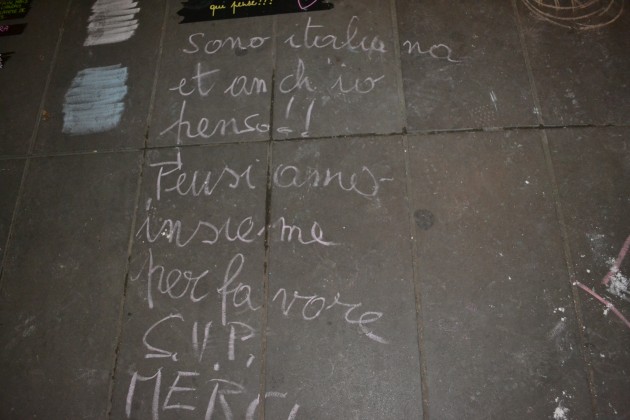 qui pense!!!
sono italiana
et anch'io
penso!!
Pensiamo
insieme
per favore
S.V.P.
MERCI